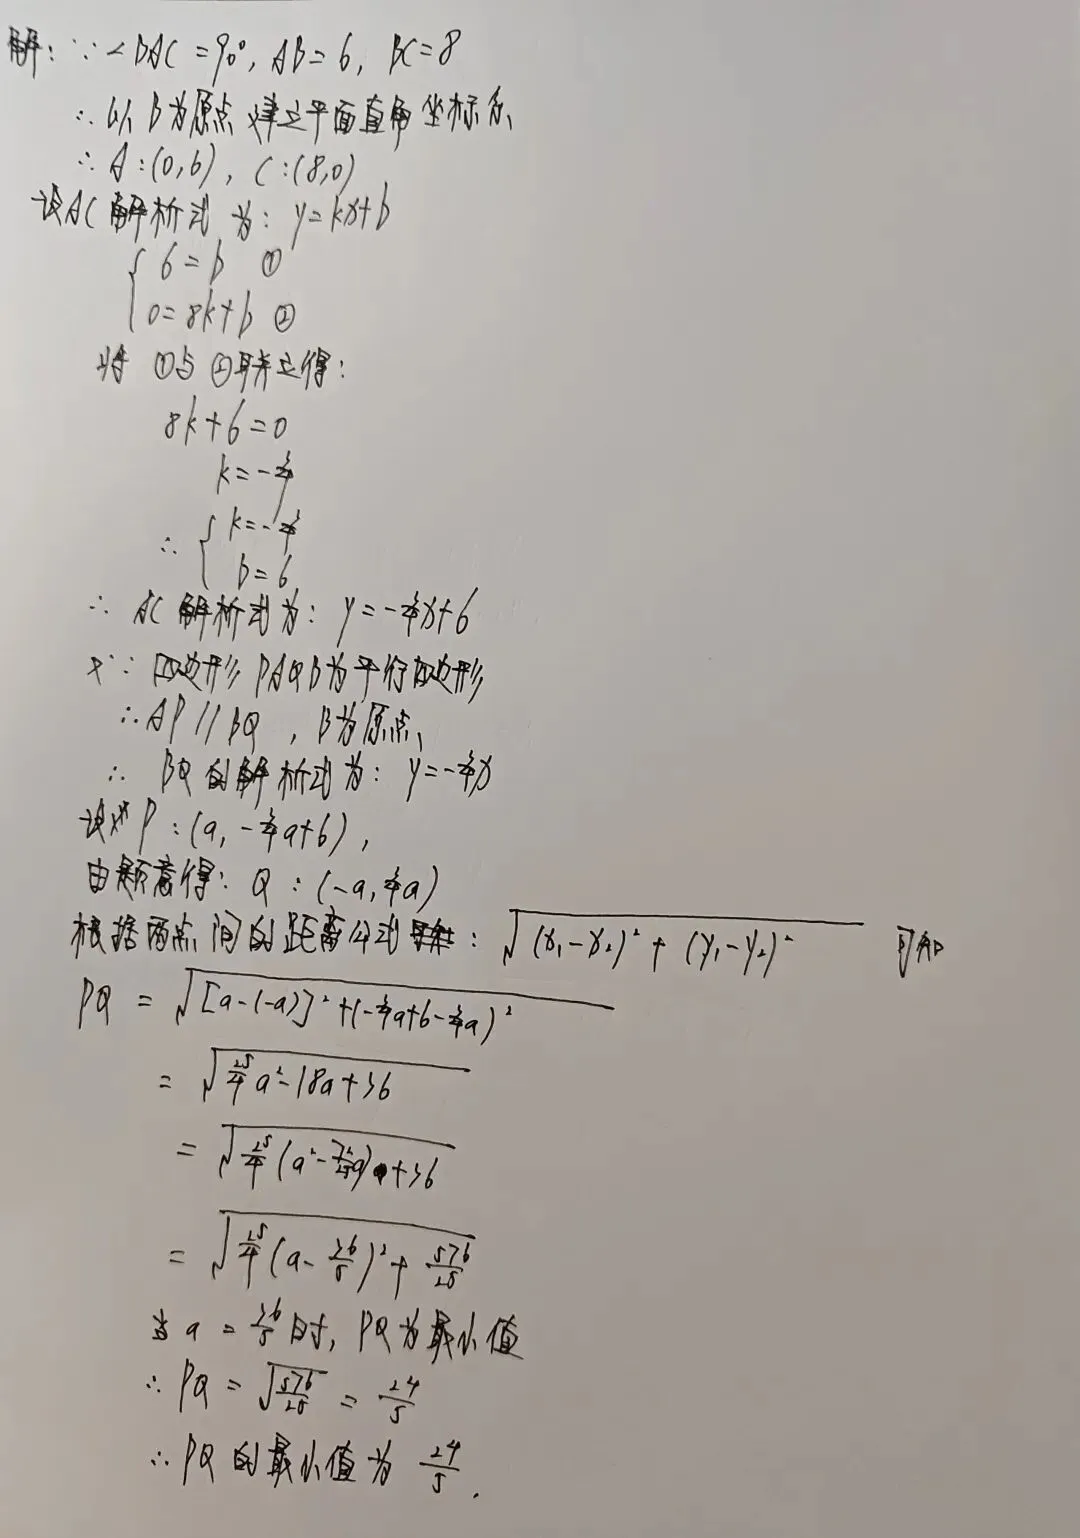 解：∵∠BAC=90°, AB=6, BC=8
∴以B为原点建立平面直角坐标系
∴A:(0,6), C:(8,0)
设AC解析式为：y=kx+b
{ 6=b ①
0=8k+b ②
将①与②联立得：
8k+6=0
k=-3/4
∴{ k=-3/4
b=6
∴AC解析式为：y=-3/4x+6
又∵四边形PAQB为平行四边形
∴AP//BQ, B为原点
∴BQ的解析式为：y=-3/4x
设P:(a,-3/4a+6),
由题意得：Q:(-a,3/4a)
根据两点间的距离公式：√((x₁-x₂)²+(y₁-y₂)²) 可知
PQ=√([a-(-a)]²+(-3/4a+6-3/4a)²)
=√(25/4a²-18a+36)
=√(25/4(a²-72/25a)+36)
=√(25/4(a-36/5)²+576/25)
当a=36/5时, PQ为最小值
∴PQ=√(576/25)=24/5
∴PQ的最小值为24/5.